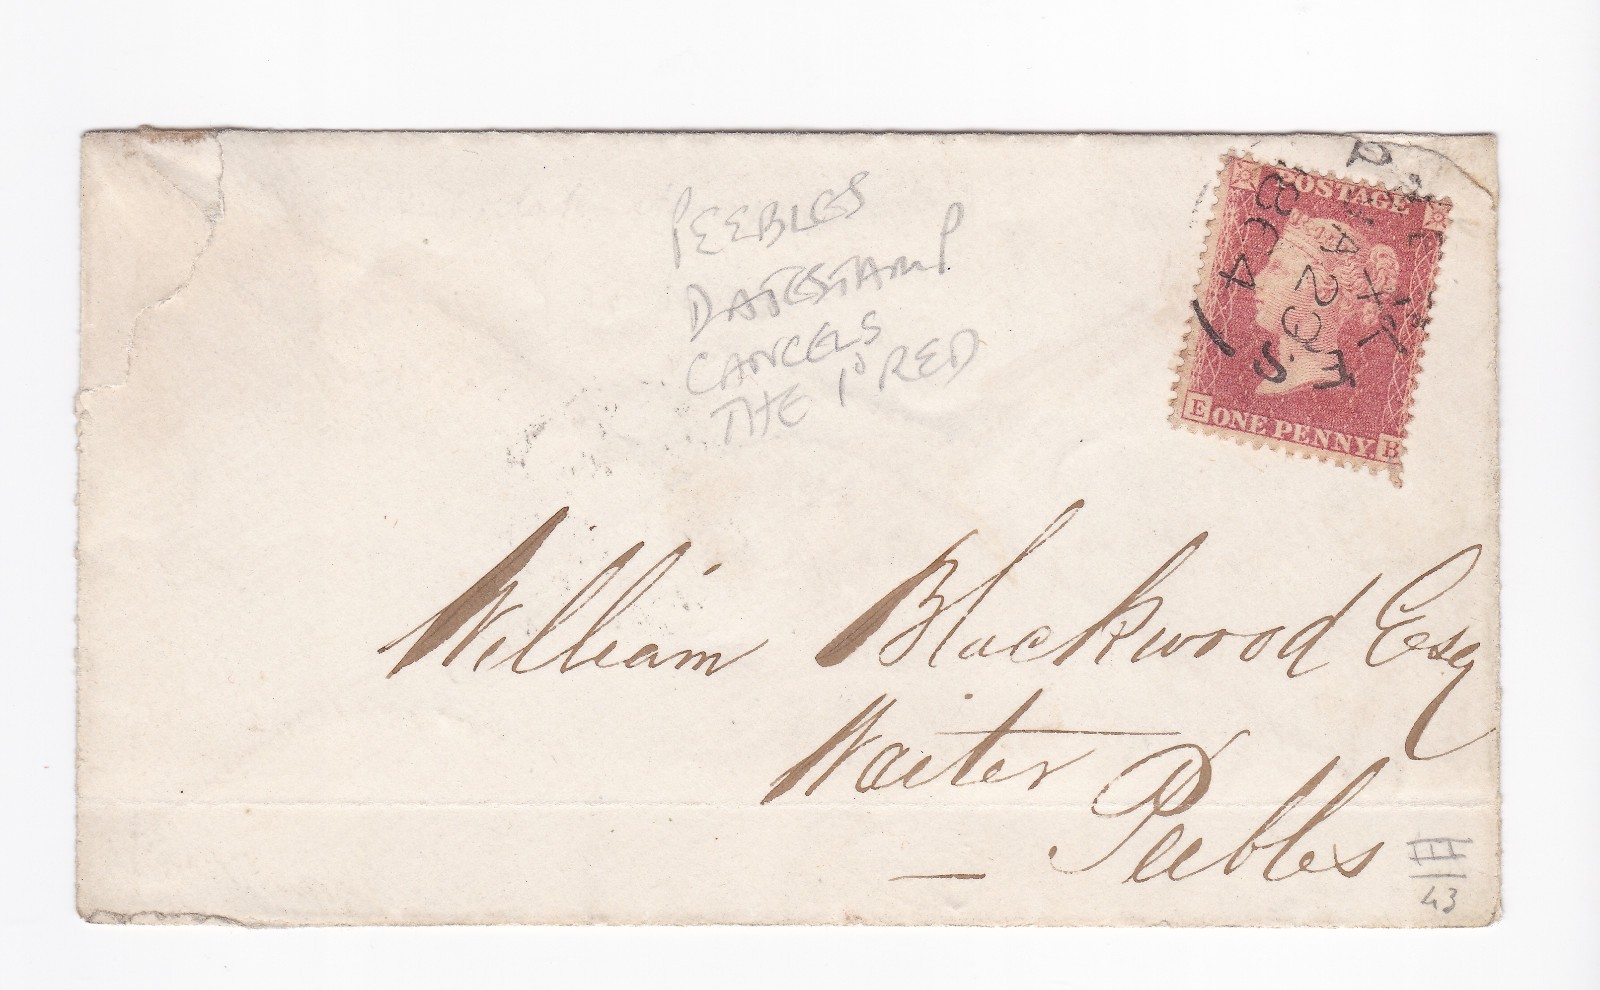 PEEBLES
DATESTAMP
CANCELS
THE 1D RED
POSTAGE
E ONE PENNY. B
William Blackwood Esq
Waiter
Peebles
43